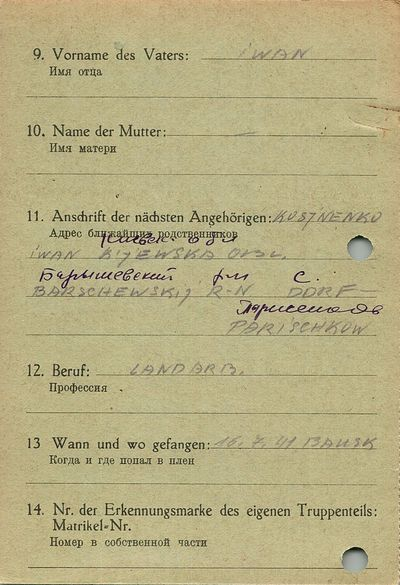 9. Vorname des Vaters: IWAN
Имя отца
10. Name der Mutter: —
Имя матери
11. Anschrift der nächsten Angehörigen: KUSJNENKO
Адрес ближайших родственников
Киевск. обл
IWAN KIJEWSKA OBL.
Барышевский р-н С.
BARSCHEWSKIJ R-N DORF—
PARISCHKOW
12. Beruf: LANDARB.
Профессия
13 Wann und wo gefangen: 16.7.41 BAUSK
Когда и где попал в плен
14. Nr. der Erkennungsmarke des eigenen Truppenteils:
Matrikel-Nr.
Номер в собственной части